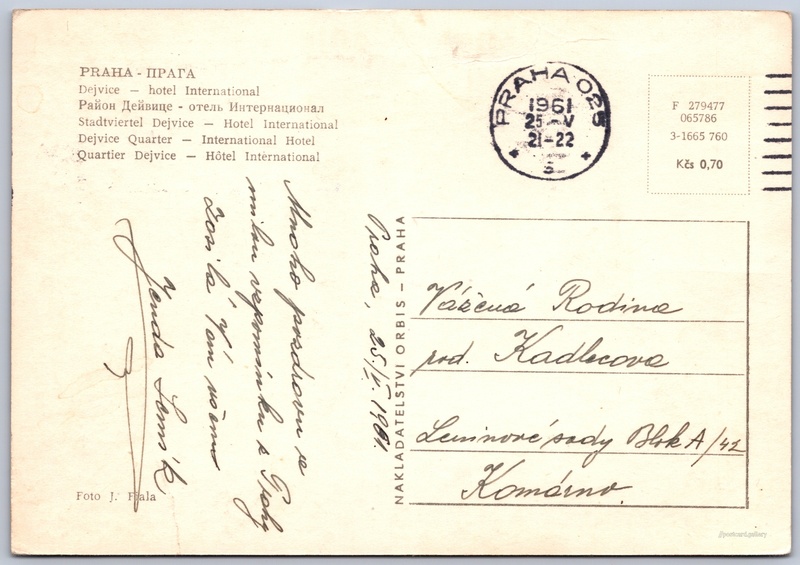 PRAHA - ПРАГА
Dejvice — hotel International
Район Дейвице - отель Интернационал
Stadtviertel Dejvice — Hotel International
Dejvice Quarter — International Hotel
Quartier Dejvice — Hôtel International
PRAHA 025
1961
25-V
21-22
s
F 279477
065786
3-1665 760
Kčs 0,70
Praha, 25./V. 1961.
Mnoho pozdravů se
milou vzpomínku z Prahy
Zasílá Vám všem
Jenda
NAKLADATELSTVÍ ORBIS — PRAHA
Vážená Rodina
rod. Kadlecova
Leninové sady Blok A/42
Komárno.
Foto J. Fiala